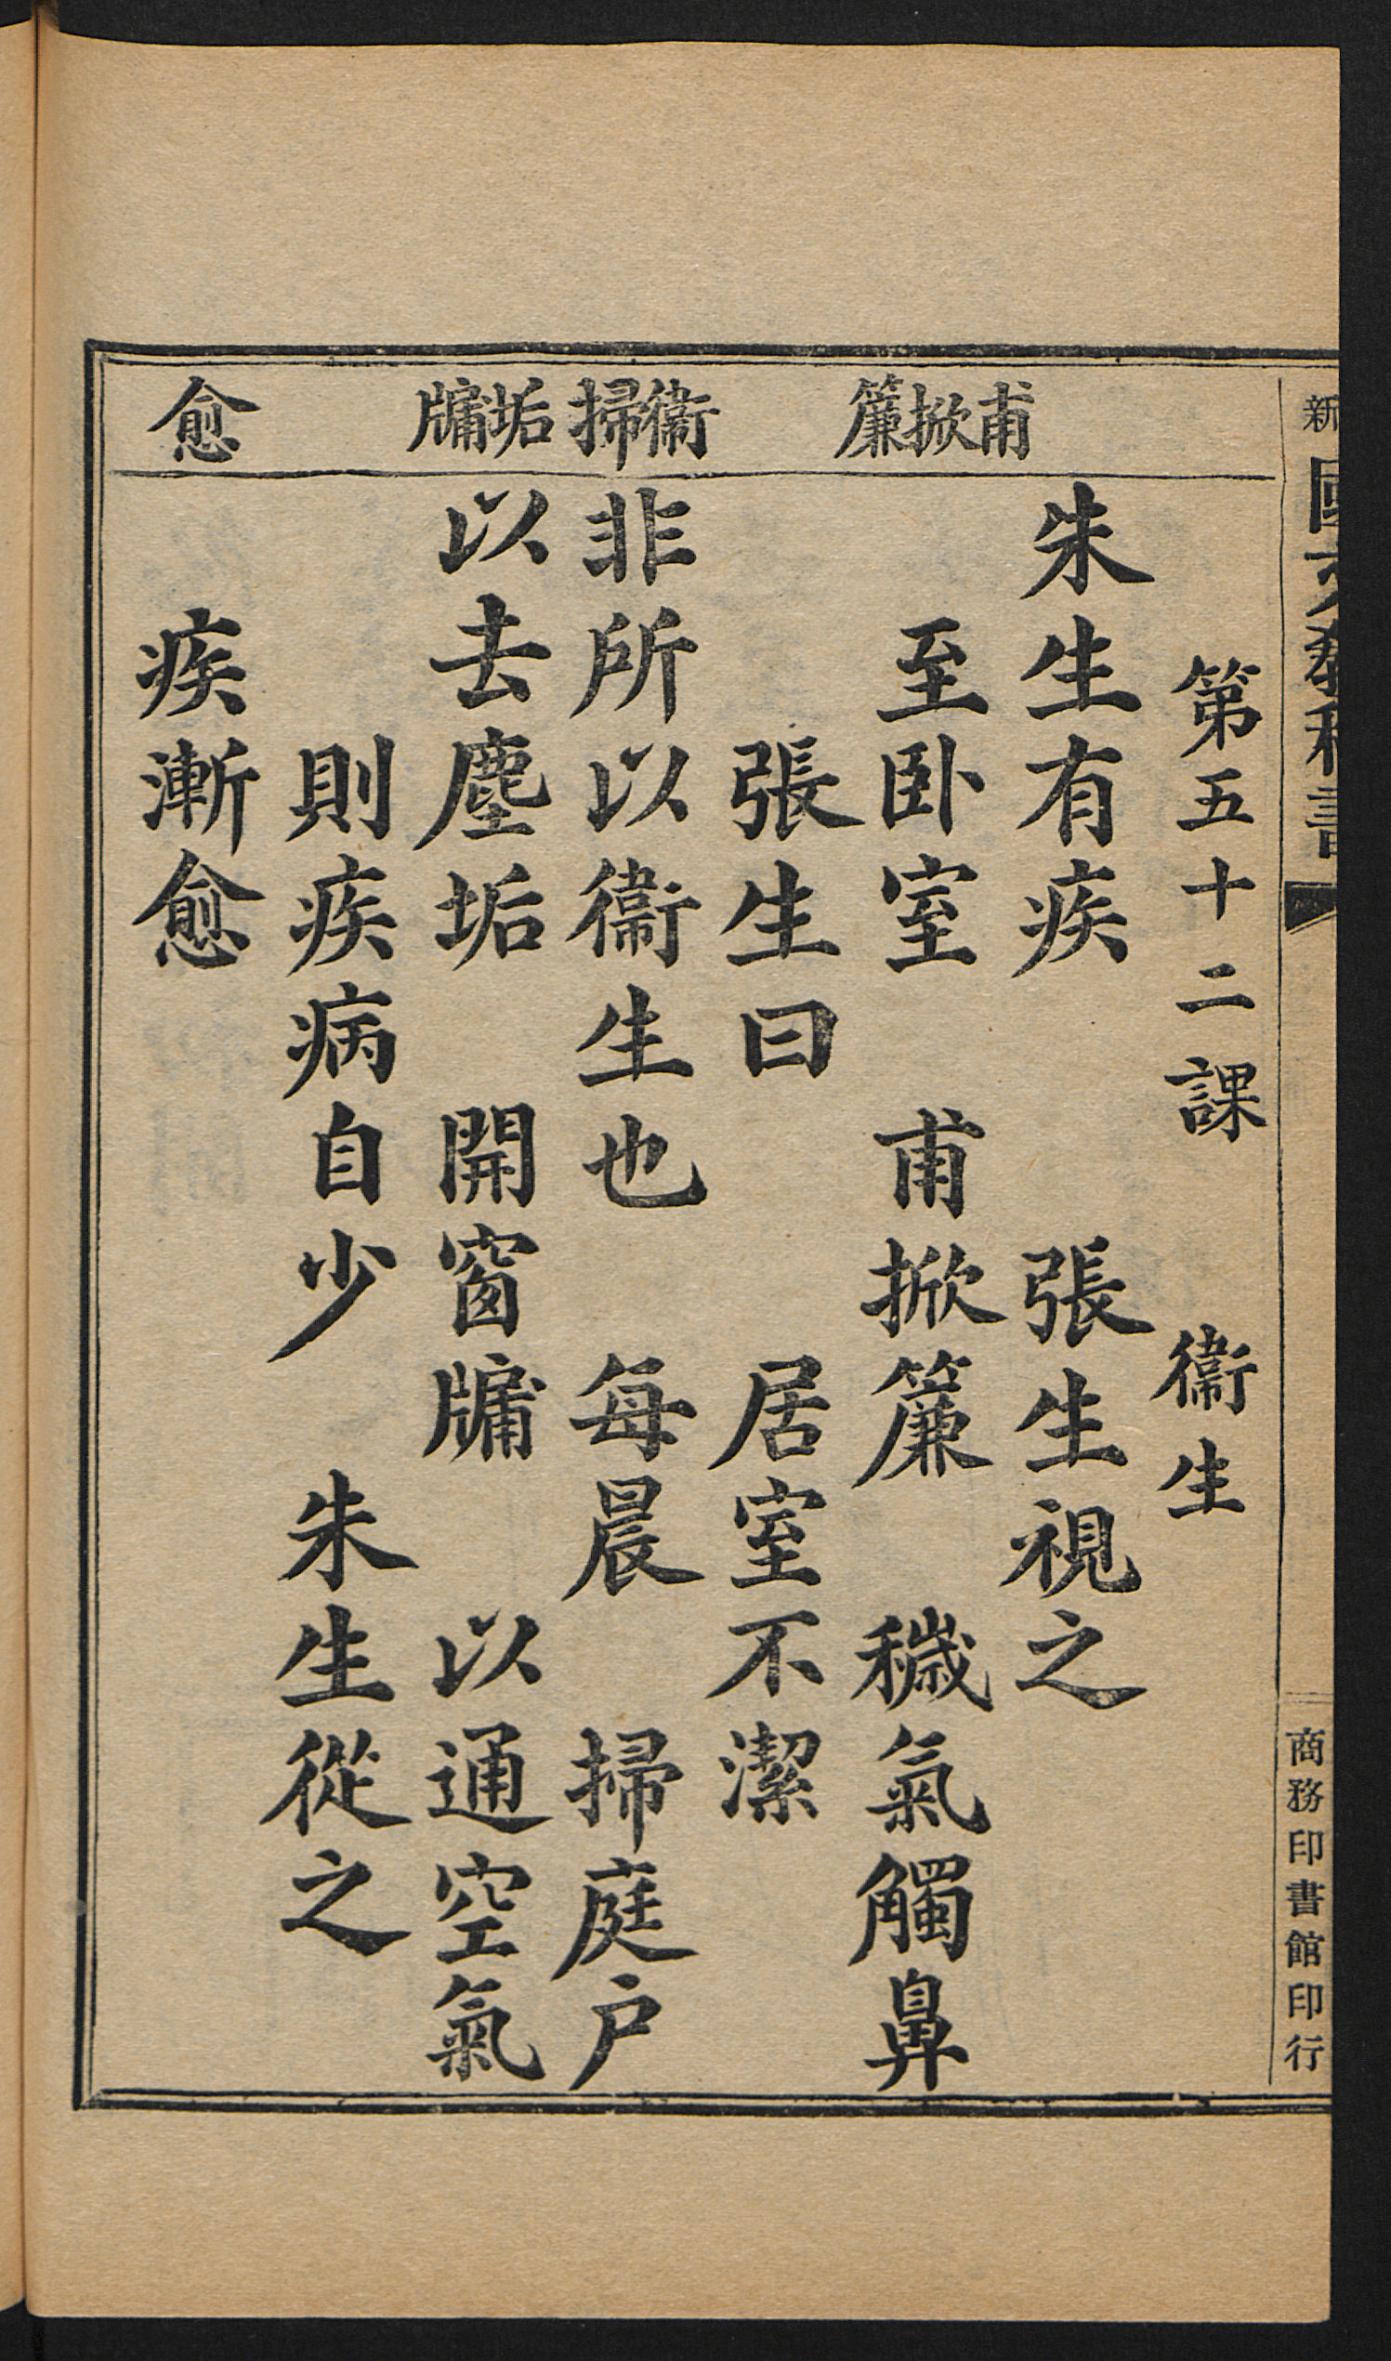 新國文教科書
商務印書館印行
第五十二課 衞生
甫掀簾
衞掃
垢牖
愈
朱生有疾 張生視之
至卧室 甫掀簾 穢氣觸鼻
張生曰 居室不潔
非所以衞生也 每晨 掃庭户
以去塵垢 開窗牖 以通空氣
則疾病自少 朱生從之
疾漸愈